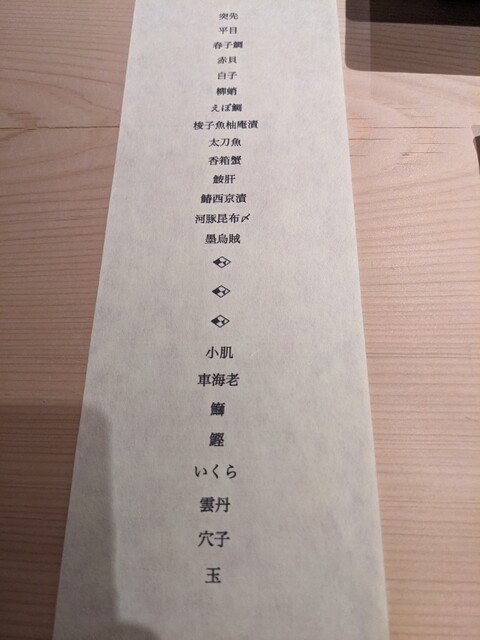 突先
平目
春子鯛
赤貝
白子
柳蛸
えぼ鯛
梭子魚柚庵漬
太刀魚
香箱蟹
鮟肝
鰆西京漬
河豚昆布〆
墨烏賊
小肌
車海老
鰤
鰹
いくら
雲丹
穴子
玉